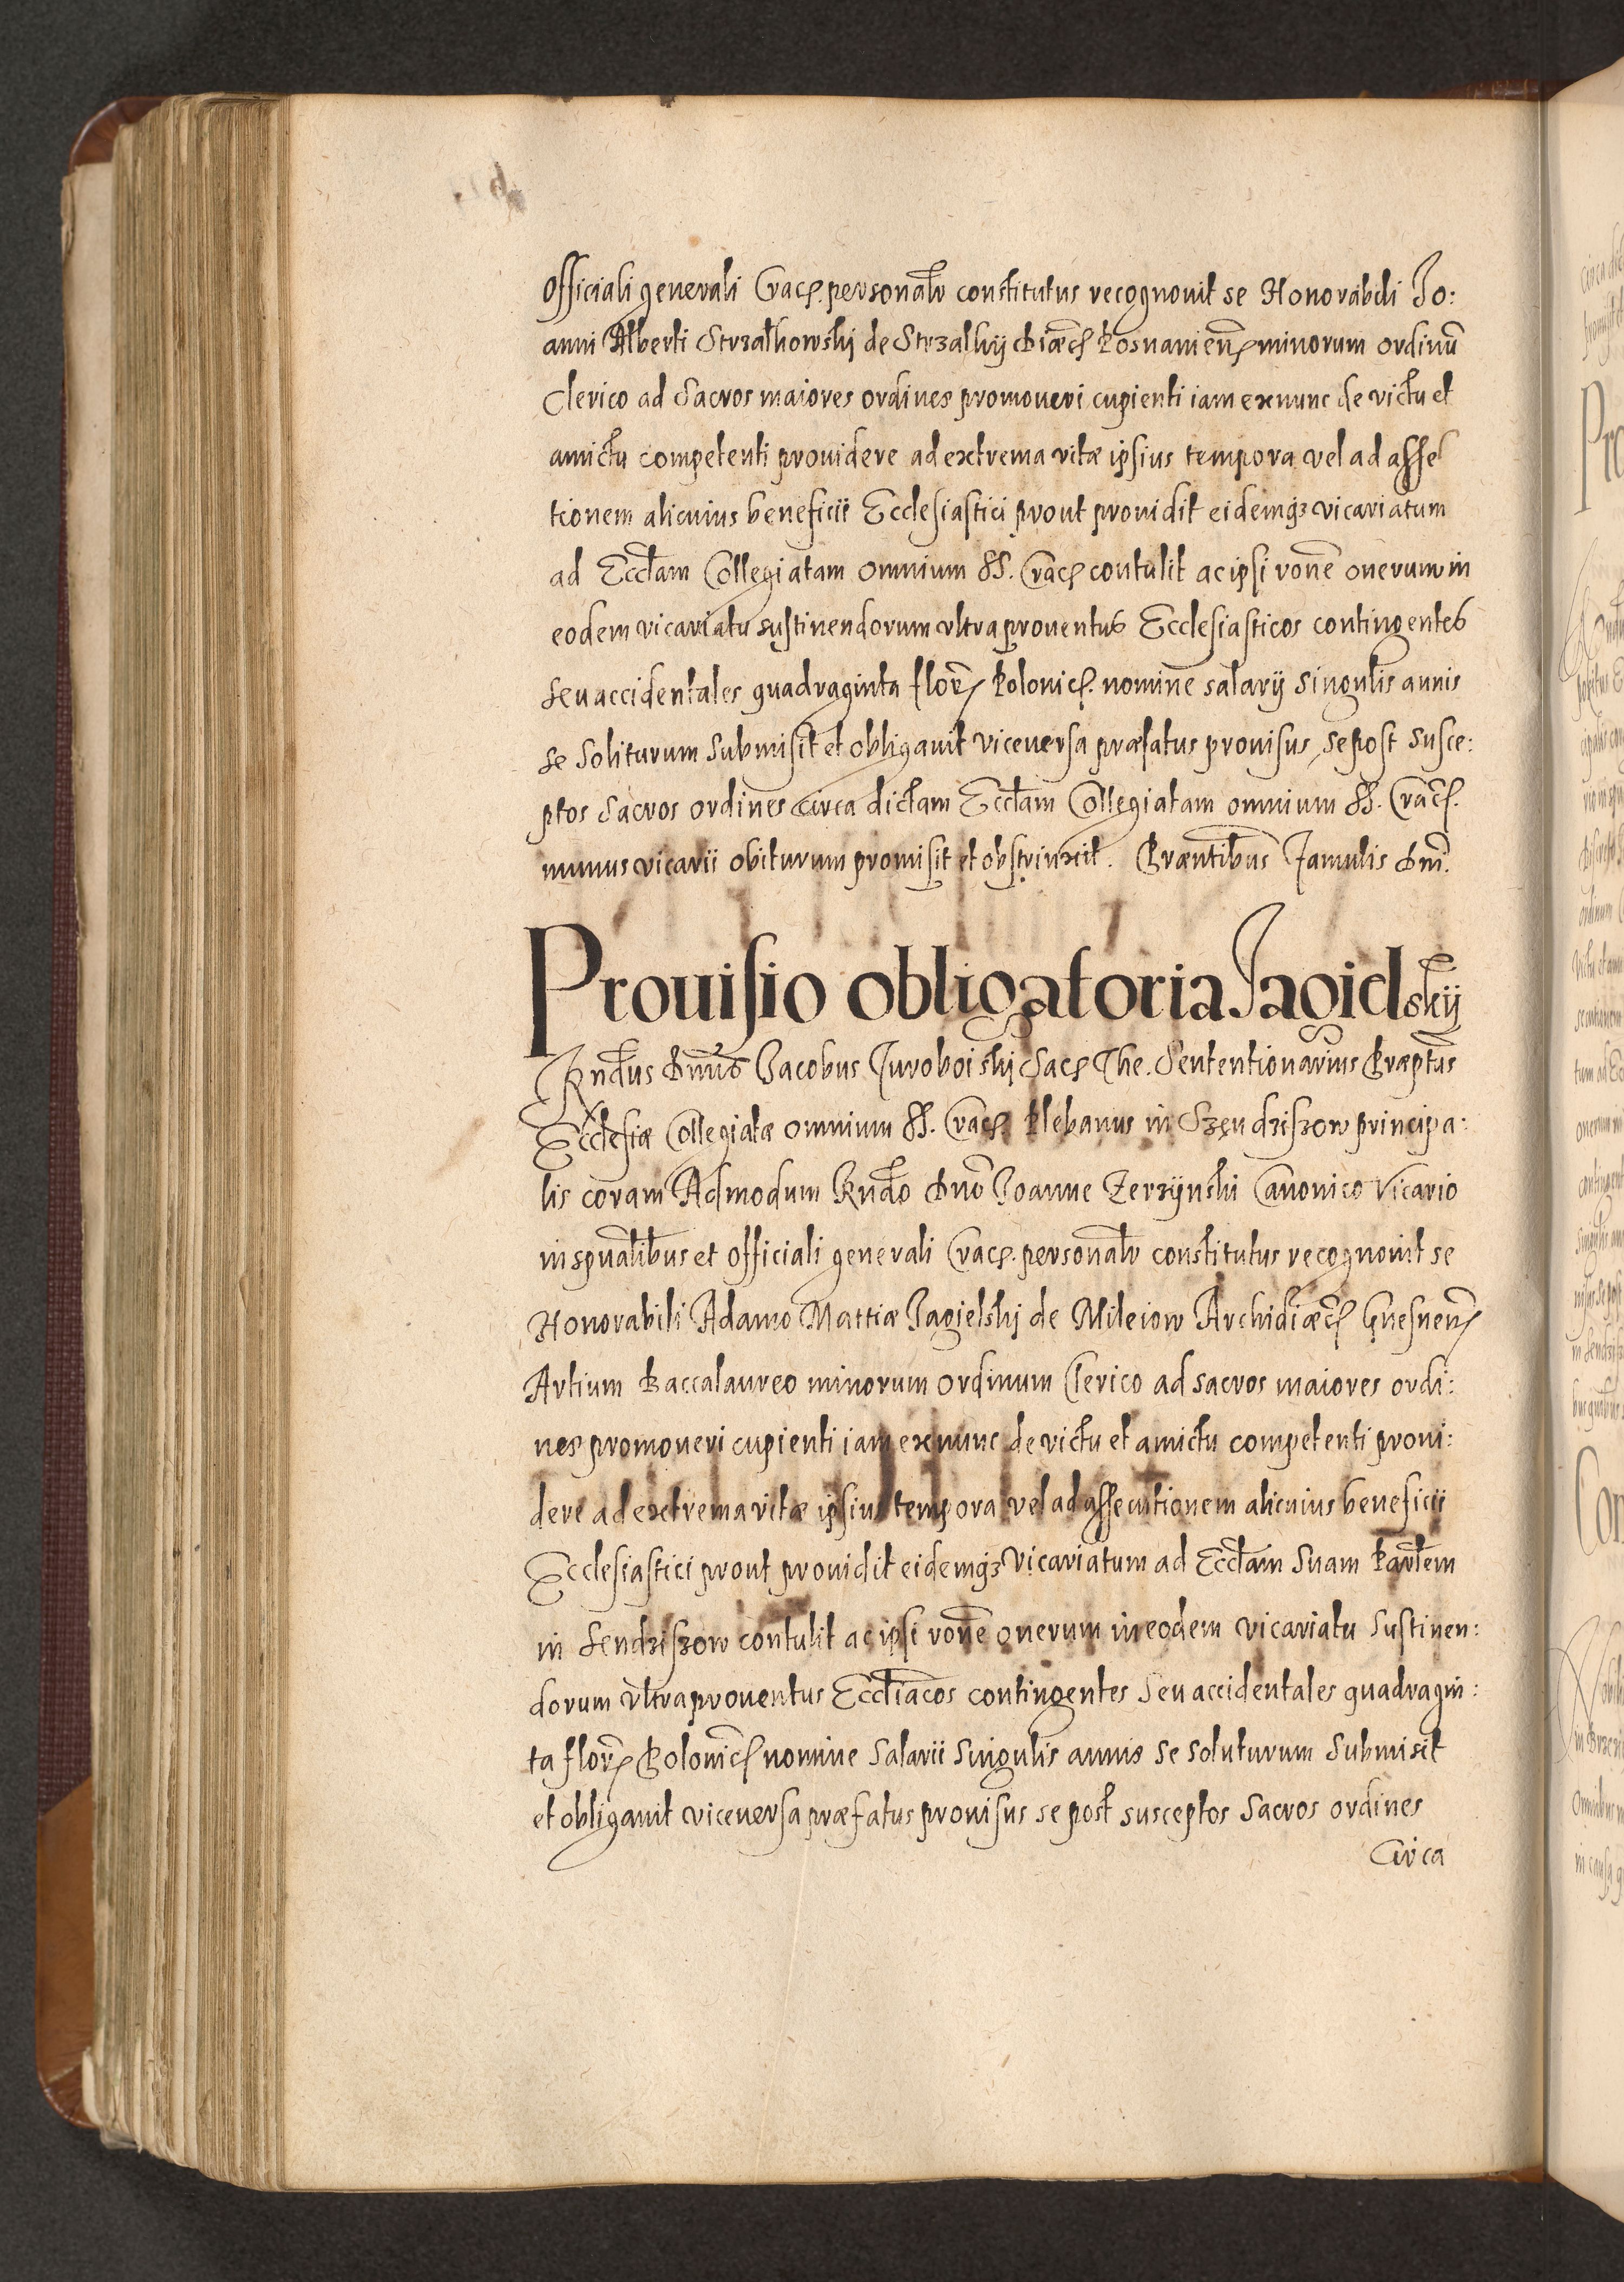 Officiali generali Crac. personalr constitutus recognouit se Honorabili Jo:
anni Alberti Strzalkowski de Strzalkij Diæc Posnanien minorum ordinū
Clerico ad Sacros maiores ordines promoueri cupienti iam ex nunc de victu et
amictu competenti prouidere ad extrema vitæ ipsius tempora vel ad asse
tionem alicuius beneficii Ecclesiastici prout prouidit eidemq3 vicariatum
ad Eccłam Collegiatam omnium SS. Crac contulit ac ipsi rone onerum in
eodem vicariatu sustinendorum vltra prouentus Ecclesiasticos contingentes
seu accidentales quadraginta flor Polonic. nomine salarij singulis annis
se soliturum submisit et obligauit viceuersa præfatus prouisus, se post susce:
ptos sacros ordines circa dictam Eccłam Collegiatam omnium SS. Crac.
munus vicarii obiturum promisit et obstrinxit. Præntibus Famulis Dni.
Prouisio obligatoria Jagielskij
Rndus Dnus Jacobus Turoboiski Sac The. Sententionarius Præptus
Ecclesiæ Collegiatæ omnium SS. Crac. Plebanus in Szendziszow principa:
lis coram Admodum Rndo Dno Joanne Zerzijnski Canonico Vicario
in spualibus et officiali generali Crac. personalr constitutus recognouit se
Honorabili Adamo Mattiæ Jagielski de Mileiow Archidiæc Gnesnen
Artium Baccalaureo minorum ordinum Clerico ad sacros maiores ordi:
nes promoueri cupienti iam ex nunc de victu et amictu competenti proui:
dere ad extrema vitæ ipsius tempora vel ad assecutionem alicuius beneficii
Ecclesiastici prout prouidit eidemq3 Vicariatum ad Eccłam suam Parłem
in Sendziszow contulit ac ipsi rone onerum in eodem vicariatu sustinen:
dorum vltra prouentus Eccłiacos contingentes seu accidentales quadragin:
ta flor Polonic nomine salarii singulis annis se soluturum submisit
et obligauit viceuersa præfatus prouisus se post susceptos sacros ordines
Circa